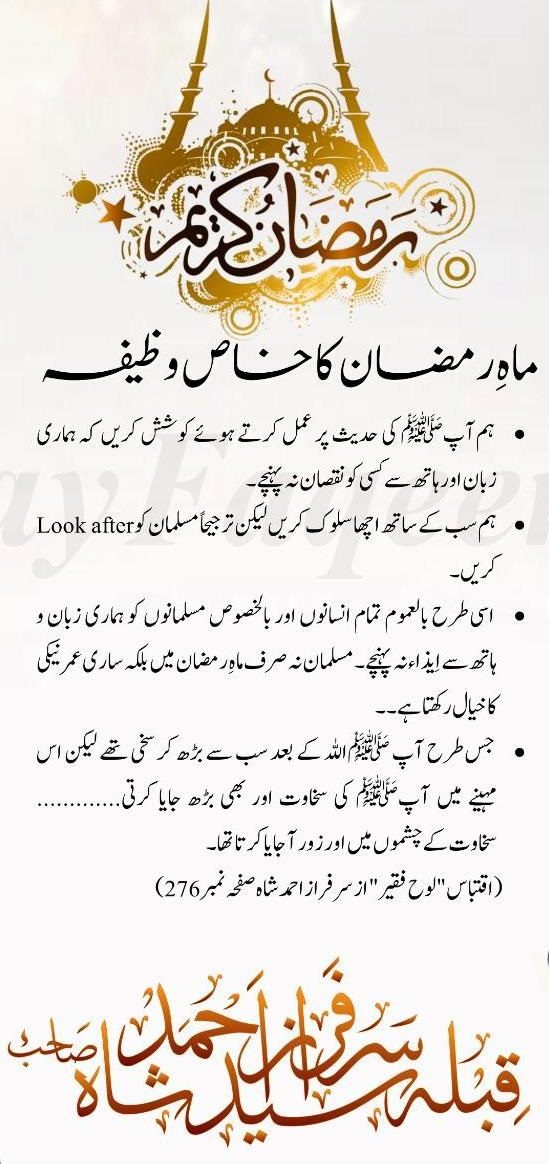 رمضان كريم
ماہِ رمضان کا خاص وظیفہ
• ہم آپ ﷺ کی حدیث پر عمل کرتے ہوئے کوشش کریں کہ ہماری
زبان اور ہاتھ سے کسی کو نقصان نہ پہنچے۔
• ہم سب کے ساتھ اچھا سلوک کریں لیکن ترجیحاً مسلمان کو Look after
کریں۔
• اسی طرح بالعموم تمام انسانوں اور بالخصوص مسلمانوں کو ہماری زبان و
ہاتھ سے اِیذاء نہ پہنچے۔ مسلمان نہ صرف ماہِ رمضان میں بلکہ ساری عمر نیکی
کا خیال رکھتا ہے۔۔
• جس طرح آپ ﷺ اللہ کے بعد سب سے بڑھ کر سخی تھے لیکن اس
مہینے میں آپ ﷺ کی سخاوت اور بھی بڑھ جایا کرتی.............
سخاوت کے چشموں میں اور زور آ جایا کرتا تھا۔
(اقتباس "لوح فقیر" از سرفراز احمد شاہ صفحہ نمبر 276)
قبلہ سید سرفراز احمد شاہ صاحب